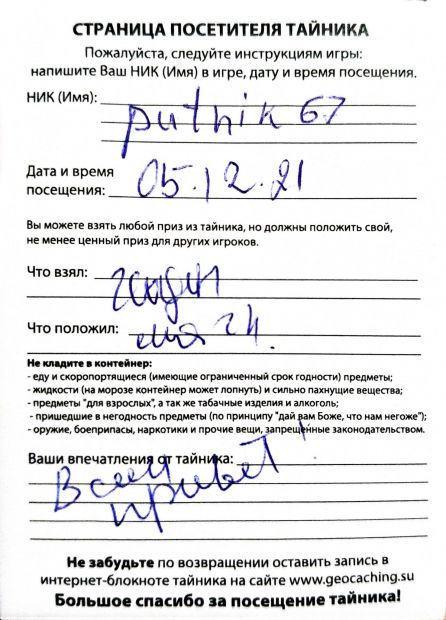 СТРАНИЦА ПОСЕТИТЕЛЯ ТАЙНИКА
Пожалуйста, следуйте инструкциям игры:
напишите Ваш НИК (Имя) в игре, дату и время посещения.
НИК (Имя): putnik 67
Дата и время
посещения: 05.12.21
Вы можете взять любой приз из тайника, но должны положить свой,
не менее ценный приз для других игроков.
Что взял:
Что положил:
Не кладите в контейнер:
- еду и скоропортящиеся (имеющие ограниченный срок годности) предметы;
- жидкости (на морозе контейнер может лопнуть) и сильно пахнущие вещества;
- предметы "для взрослых", а так же табачные изделия и алкоголь;
- пришедшие в негодность предметы (по принципу "дай вам Боже, что нам негоже");
- оружие, боеприпасы, наркотики и прочие вещи, запрещённые законодательством.
Ваши впечатления от тайника:
Всем
привет!
Не забудьте по возвращении оставить запись в
интернет-блокноте тайника на сайте www.geocaching.su
Большое спасибо за посещение тайника!